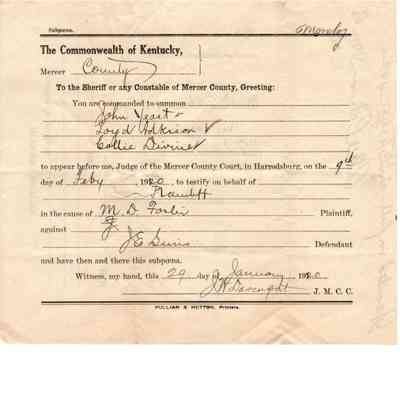 Subpœna.
Monday
The Commonwealth of Kentucky,
Mercer County
To the Sheriff or any Constable of Mercer County, Greeting:
You are commanded to summon
John Yeast
Loyd Adkison
Callie Divine
to appear before me, Judge of the Mercer County Court, in Harrodsburg, on the 9th
day of Feby 1920, to testify on behalf of
Plaintiff
in the cause of M. D. Foster Plaintiff,
against
J E Sims Defendant
and have then and there this subpœna.
Witness, my hand, this 29 day of January 1920
J. M. C. C.
PULLIAM & HUTTON, Printers.